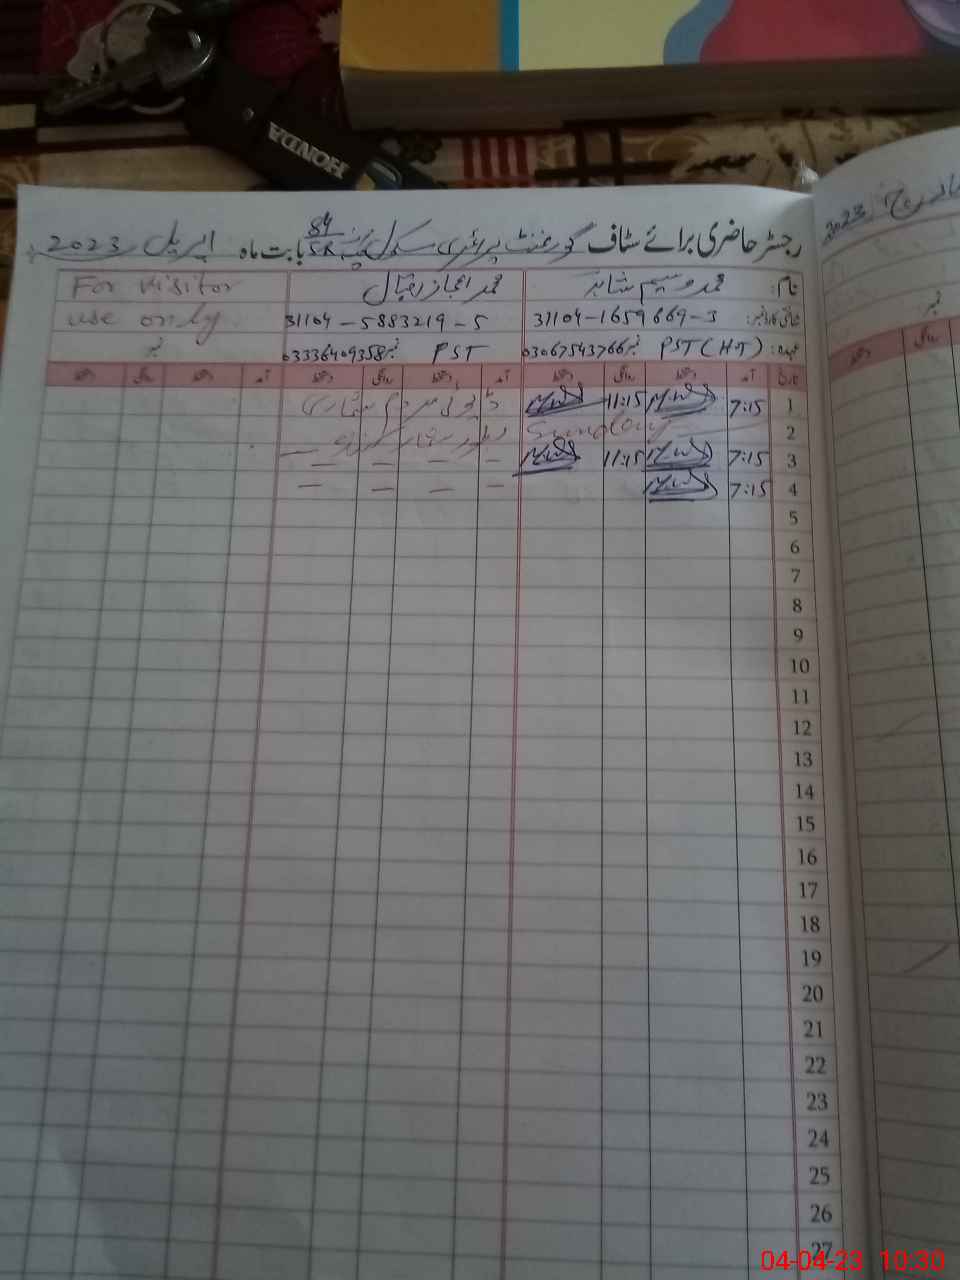 HONDA
رجسٹر حاضری برائے سٹاف گورنمنٹ پرائمری سکول 84/5R بابت ماہ اپریل 2023
نام: محمد وسیم شاہد محمد اعجاز اقبال For visitor
شناختی کارڈ نمبر: 31104-1659669-3 31104-5883219-5 use only
عہدہ: PST (HT) نمبر 03067543766 PST نمبر 03336409358 نمبر
تاریخ آمد دستخط روانگی دستخط آمد دستخط روانگی دستخط آمد دستخط روانگی دستخط
1 7:15 11:15
2 Sunday
3 7:15 11:15 — — — —
4 7:15 — — — —
5
6
7
8
9
10
11
12
13
14
15
16
17
18
19
20
21
22
23
24
25
26
27
2023
نمبر
روانگی دستخط
04-04-23 10:30